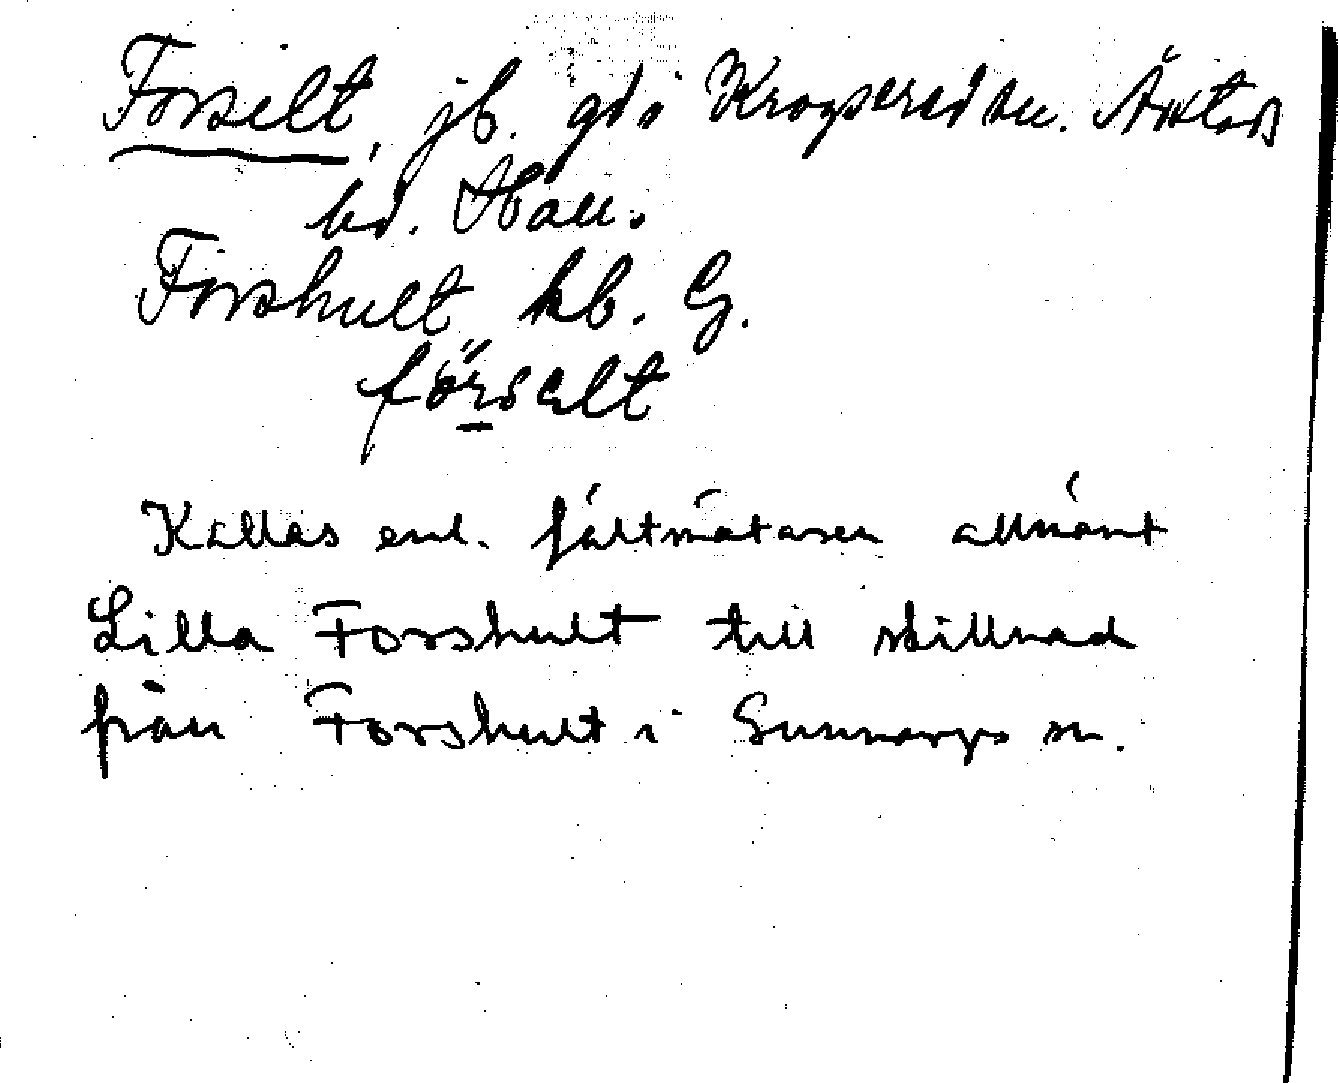 Forselt, jb. gd i Krogsered sn. Årstads
hd. Hall.
Forshult kb. G.
förselt
Kallas enl. fältmätaren allmänt
Lilla Forshult till skillnad
från Forshult i Gunnarps sn.